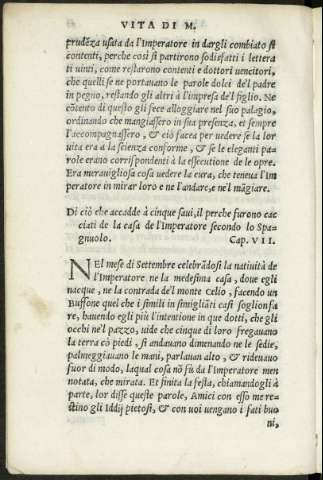 VITA DI M.
prudẽza usata da l'Imperatore in dargli combiato sì
contenti, perche così si partirono sodisfatti i lettera
ti uinti, come restarono contenti e dottori uencitori,
che quelli se ne portauano le parole dolci del padre
in pegno, restando gli altri à l'impresa del figlio. Ne
cõtento di questo gli fece alloggiare nel suo palagio,
ordinando che mangiassero in sua presenza, et sempre
l'accompagnassero, & ciò facea per uedere se la lor
uita era a la scienza conforme, & se le eleganti pa
role erano corrispondenti à la essecutione de le opre.
Era marauigliosa cosa uedere la cura, che teneua l'Im
peratore in mirar loro e ne l'andare, e ne'l mãgiare.
Di ciò che accadde à cinque saui, il perche furono cac
ciati de la casa de l'Imperatore secondo lo Spa-
gnuolo. Cap. VII.
NEl mese di Settembre celebrãdosi la natiuità de
l'Imperatore ne la medesima casa, doue egli
nacque, ne la contrada del monte Celio, facendo un
Buffone quel che i simili in simigliãti casi soglion fa
re, hauendo egli più l'intentione in que dotti, che gli
occhi ne'l pazzo, uide che cinque di loro fregauano
la terra cò piedi, si andauano dimenando ne le sedie,
palmeggiauano le mani, parlauan alto, & rideuano
fuor di modo, laqual cosa nõ fù da l'Imperatore men
notata, che mirata. Et finita la festa, chiamandogli à
parte, lor disse queste parole, Amici con esso me re-
stino gli Iddij pietosi, & con uoi uengano i fati buo
ni,